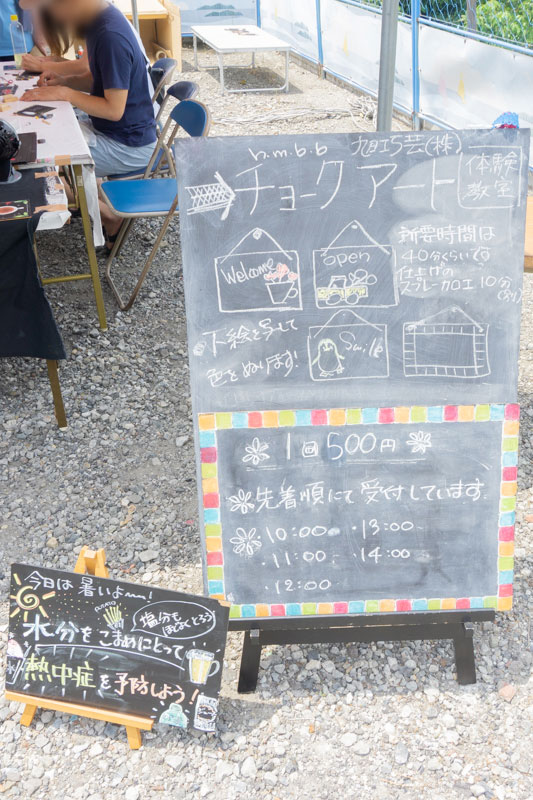 h.m.b.b 旭工芸(株)
チョークアート
体験
教室
Welcome
open
Smile
所要時間は
40分くらいです
仕上げの
スプレー加工10分
下絵を写して
色をぬります!
1回500円
先着順にて受付しています。
・10:00 ・13:00
・11:00 ・14:00
・12:00
今日は暑いよ〜!
水分をこまめにとって
塩分も
ほどよくとろう
熱中症を予防しよう!